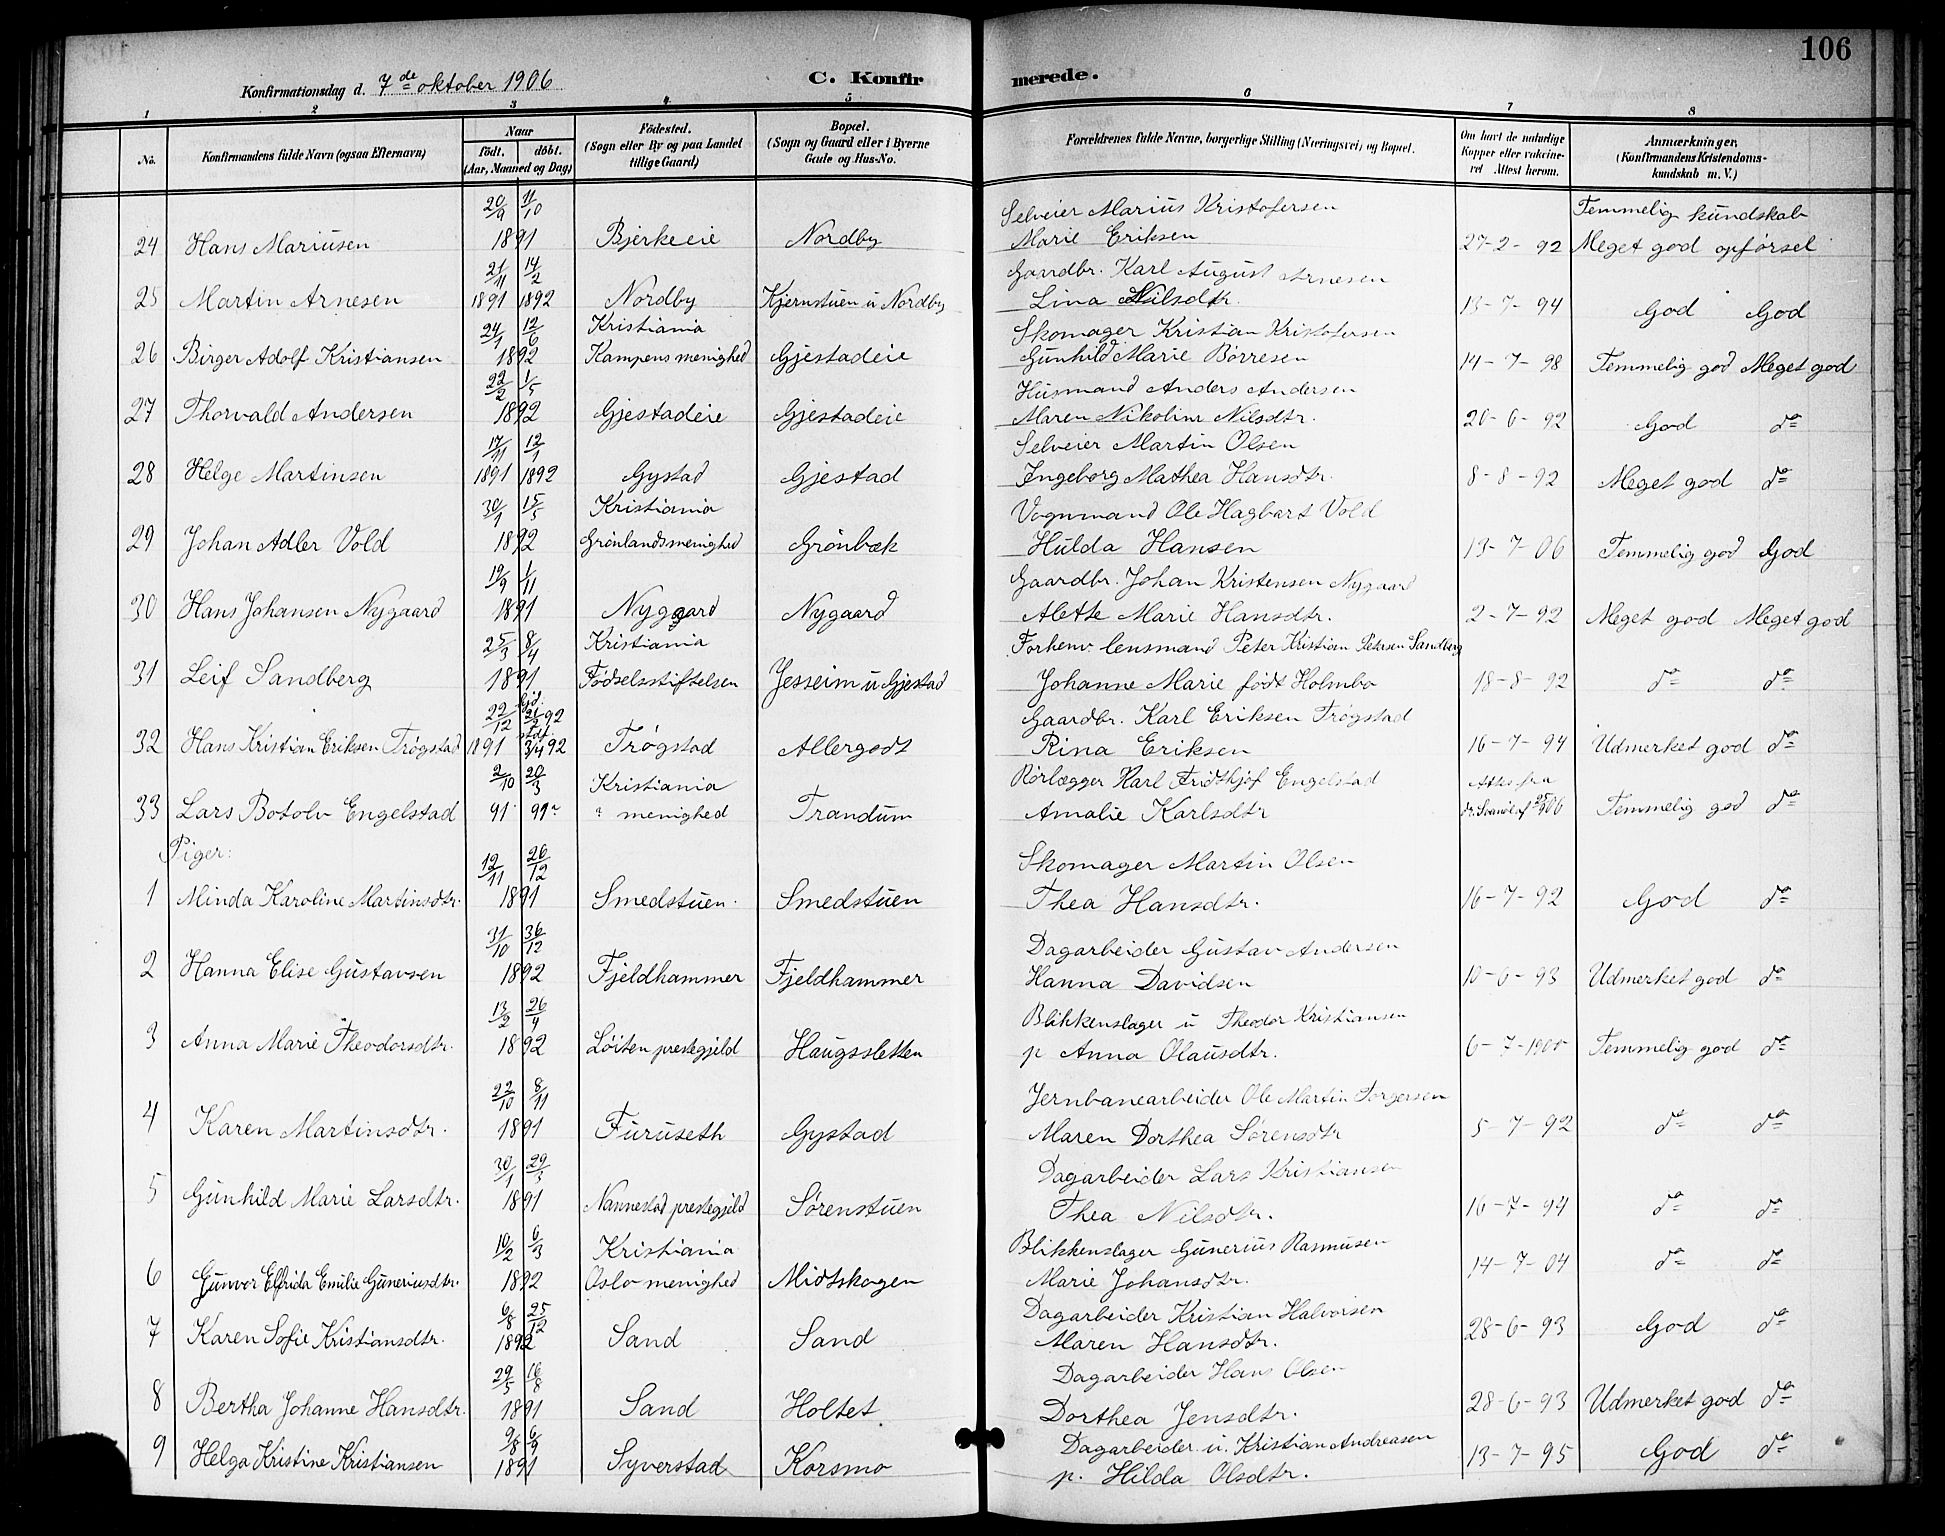 106
Konfirmationsdag d. 7de oktober 1906
C. Konfirmerede.
1 2 3 4 5 6 7 8
No. Konfirmandens fulde Navn (ogsaa Efternavn) Naar født. døbt. (Aar, Maaned og Dag) Fødested. (Sogn eller By og paa Landet tillige Gaard) Bopæl. (Sogn og Gaard eller i Byerne Gade og Hus-No. Forældrenes fulde Navne, borgerlige Stilling (Næringsvei) og Bopæl. Om havt de naturlige Kopper eller vakcineret Attest herom. Anmærkninger, (Konfirmandens Kristendomskundskab m. V.)
20/9 11/10 Selveier Marius Kristofersen Temmelig kundskab
24 Hans Mariusen 1891 Bjerkeeie Nordby Marie Eriksen 27-2-92 Meget god opførsel
21/11 14/2 Gaardbr. Karl August Arnesen
25 Martin Arnesen 1891 1892 Nordby Kjernstuen u Nordby Lina Nilsdtr. 13-7-94 God God
24/1 12/6 Kristiania Skomager Kristian Kristofersen
26 Birger Adolf Kristiansen 1892 Kampens menighed Gjestadeie Gunhild Marie Børresen 14-7-98 Temmelig god Meget god
22/2 1/5 Husmand Anders Andersen
27 Thorvald Andersen 1892 Gjestadeie Gjestadeie Maren Nikoline Nilsdtr. 20-6-92 God do
17/11 12/1 Selveier Martin Olsen
28 Helge Martinsen 1891 1892 Gystad Gjestad Ingeborg Mathea Hansdtr. 8-8-92 Meget god do
30/1 15/5 Kristiania Vognmand Ole Hagbart Vold
29 Johan Adler Vold 1892 Grønlandsmenighed Grønbæk Hulda Hansen 13-7-06 Temmelig god God
19/9 1/11 Gaardbr. Johan Kristensen Nygaard
30 Hans Johansen Nygaard 1891 Nygaard Nygaard Alette Marie Hansdtr. 2-7-92 Meget god Meget god
25/3 8/4 Kristiania Forhenv. lensmand Peter Kristian Petersen Sandberg
31 Leif Sandberg 1891 Fødselsstiftelsen Jesseim u Gjestad Johanne Marie født Holmbo 18-8-92 do do
22/12 hjd. 21/2 92 Gaardbr. Karl Eriksen Trøgstad
32 Hans Kristian Eriksen Trøgstad 1891 stdf. 3/4 92 Trøgstad Allergodt Rina Eriksen 16-7-94 Udmerket god do
2/10 20/3 Kristiania Rørlægger Karl Fridthjof Engelstad Attes fra
33 Lars Botolv Engelstad 91 99 ? menighed Trandum Amalie Karlsdtr 06 Temmelig god do
Piger:
12/11 26/12 Skomager Martin Olsen
1 Minda Karoline Martinsdtr. 1891 Smedstuen. Smedstuen Thea Hansdtr. 16-7-92 God do
31/10 36/12 Dagarbeider Gustav Andersen
2 Hanna Elise Gustavsen 1892 Fjeldhammer Fjeldhammer Hanna Davidsen 10-6-93 Udmerket god do
13/2 26/4 Blikkenslager u Theodor Kristiansen
3 Anna Marie Theodorsdtr. 1892 Løiten prestegjeld Haugssletten p Anna Olausdtr. 6-7-1900 Temmelig god do
22/10 8/11 Jernbanearbeider Ole Martin Torgersen
4 Karen Martinsdtr. 1891 Furuseth Gystad Maren Dorthea Sørensdtr 5-7-92 do do
30/1 29/3 Dagarbeider Lars Kristiansen
5 Gunhild Marie Larsdtr. 1891 Nannestad prestegjeld Sørenstuen Thea Nilsdtr. 16-7-94 do do
10/2 6/3 Kristiania Blikkenslager Gunerius Rasmusen
6 Gunvor Elfrida Emilie Guneriusdtr. 1892 Oslo menighed Midtskogen Marie Johansdtr. 14-7-04 do do
6/8 25/12 Dagarbeider Kristian Halvorsen
7 Karen Sofie Kristiansdtr. 1892 Sand Sand Maren Hansdtr. 28-6-93 God do
29/5 16/8 Dagarbeider Hans Olsen
8 Bertha Johanne Hansdtr. 1891 Sand Holtet Dorthea Jensdtr. 28-6-93 Udmerket god do
9/8 6/9 Dagarbeider u. Kristian Andreasen
9 Helga Kristine Kristiansen 1891 Syverstad Korsmo p. Hilda Olsdtr. 13-7-95 God do